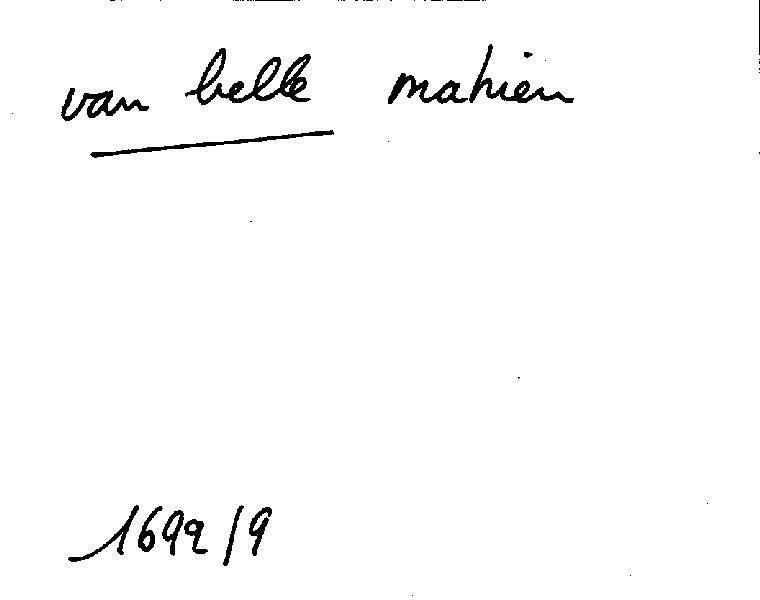 van belle mahieu
1692/9